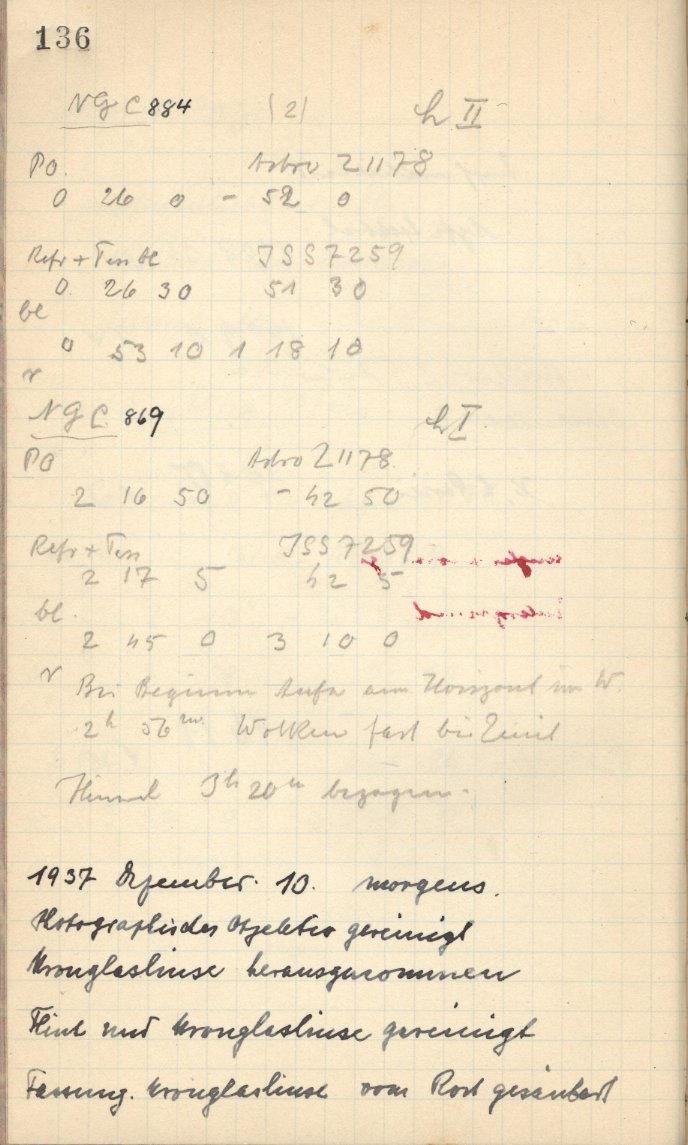 136
NGC 884 (2) h II
Po. Astro 21178
0 26 0 - 52 0
Refr + Tess bl ISS 7259
0 26 30 51 30
bl
0 53 10 1 18 10
r
NGC 869 h I
PO Astro 21178
2 16 50 - 42 50
Refr + Tess ISS 7259
2 17 5 42 5
bl.
2 45 0 3 10 0
r Bei Beginn Aufn am Horizont im W.
2h 56m Wolken fast bis Zenit
Himmel 3h 20m bezogen.
1937 Dezember. 10. morgens.
Photographisches Objektiv gereinigt
Kronglaslinse herausgenommen
Flint und Kronglaslinse gereinigt
Fassung. Kronglaslinse vom Rost gesäubert